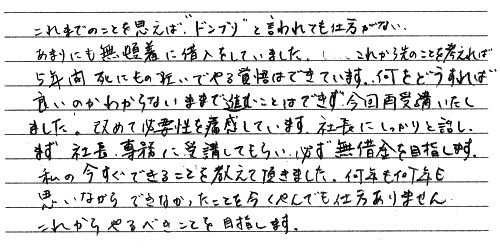 これまでのことを思えば“ドンブリ”と言われても仕方がない.
あまりにも無頓着に借入をしていました. これから先のことを考えれば
5年間 死にもの狂いでやる覚悟はできています. 何をどうすれば
良いのかわからないままで進むことはできず 今回再受講いたし
ました。改めて必要性を痛感しています. 社長にしっかりと話し.
まず 社長. 専務に受講してもらい. 必ず 無借金を目指します.
私の今すぐできることを教えて頂きました. 何年も何年も
思いながら できなかったことを今くやんでも仕方ありません.
これからやるべきことを目指します.